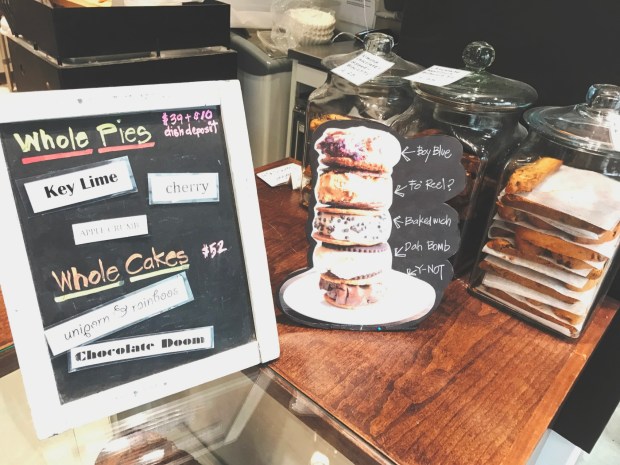 Whole Pies $39 + $10
dish deposit
Key Lime
cherry
APPLE CRUMB
Whole Cakes $52
unicorn & rainbows
Chocolate Doom
Boy Blue
Fo' Reel?
Bakedwich
Dah Bomb
Y-NOT